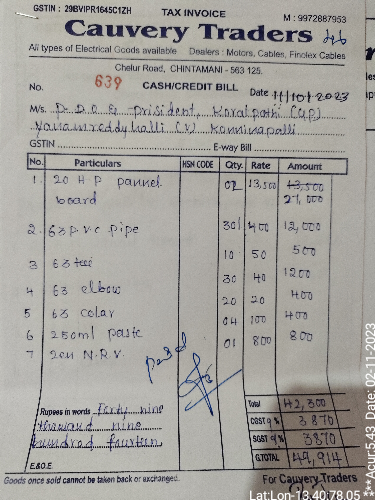 GSTIN : 29BVIPR1645C1ZH TAX INVOICE M : 9972887953
Cauvery Traders
All types of Electrical Goods available Dealers : Motors, Cables, Finolex Cables
Chelur Road, CHINTAMANI - 563 125.
No. 639 CASH/CREDIT BILL Date 11/10/2023
M/s. P.D.O & prisident, Koralpathi (GP)
Yanamreddyhalli (V) Konninapalli
GSTIN E-way Bill
No. Particulars HSN CODE Qty. Rate Amount
1. 20 H P pannel 02 13,500 13,500
board 27,000
2. 63 P.V.C pipe 30l 400 12,000
3 63 tee 10 50 500
4 63 elbow 30 40 1200
5 63 colar 20 20 400
6 250ml paste 04 100 400
7 2011 N.R.V. 01 800 800
paid
Total 42,300
Rupees in words Forty nine
CGST 9 % 3870
thousand nine
SGST 9 % 3870
hundred fourteen
G.TOTAL 49,914
E.&O.E.
Goods once sold cannot be taken back or exchanged. For Cauvery Traders
Lat:Lon- 13.40:78.05 ***Acur:5.43 Date: 02-11-2023